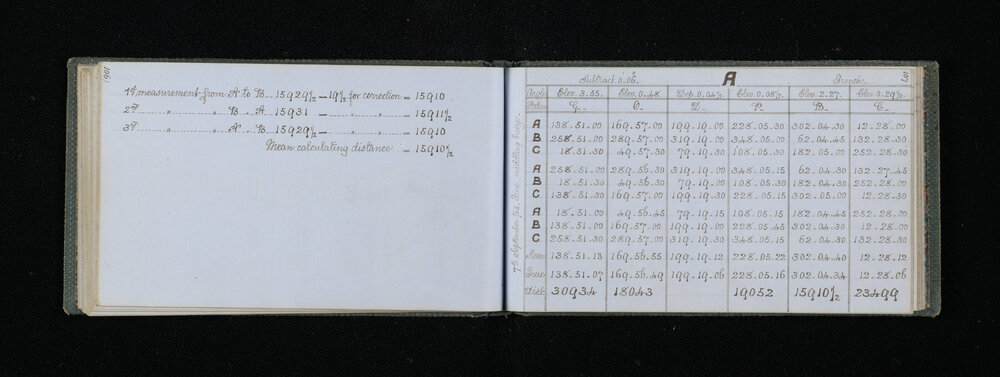 1901
1st measurement from A to B 15929½ – 19½ for correction = 15910
2nd " " " B " A 15931 – " " = 15911½
3rd " " " A " B 15929½ – " " = 15910
Mean calculating distance = 15910½
7th September /95. Fine, middling hazy.
Subtract. 0.06. A French.
Angle Elev. 3.55. Elev. 0.48. Dep. 0.04½ Elev. 0.08½ Elev. 2.27. Elev. 0.29½
A 138.51.00 169.57.00 199.19.00 228.05.30 302.04.30 12.28.00
B 258.51.00 289.57.00 319.19.00 348.05.00 62.04.45 132.28.30
C 18.51.30 49.57.30 79.19.30 108.05.30 182.05.00 252.28.30
A 258.51.00 289.56.30 319.19.00 348.05.15 62.04.30 132.27.45
B 18.51.30 49.56.30 79.19.00 108.05.30 182.04.30 252.28.00
C 138.51.30 169.57.00 199.19.30 228.05.15 302.05.00 12.28.30
A 18.51.00 49.56.45 79.19.15 108.05.15 182.04.45 252.28.00
B 138.51.00 169.57.00 199.19.00 228.05.45 302.04.30 12.28.00
C 258.51.30 289.57.00 319.19.30 348.05.15 62.04.30 132.28.30
Mean 138.51.13 169.56.55 199.19.12 228.05.22 302.04.40 12.28.12
True 138.51.07 169.56.49 199.19.06 228.05.16 302.04.34 12.28.06
Dist. 30934 18043 19052 15910½ 23499